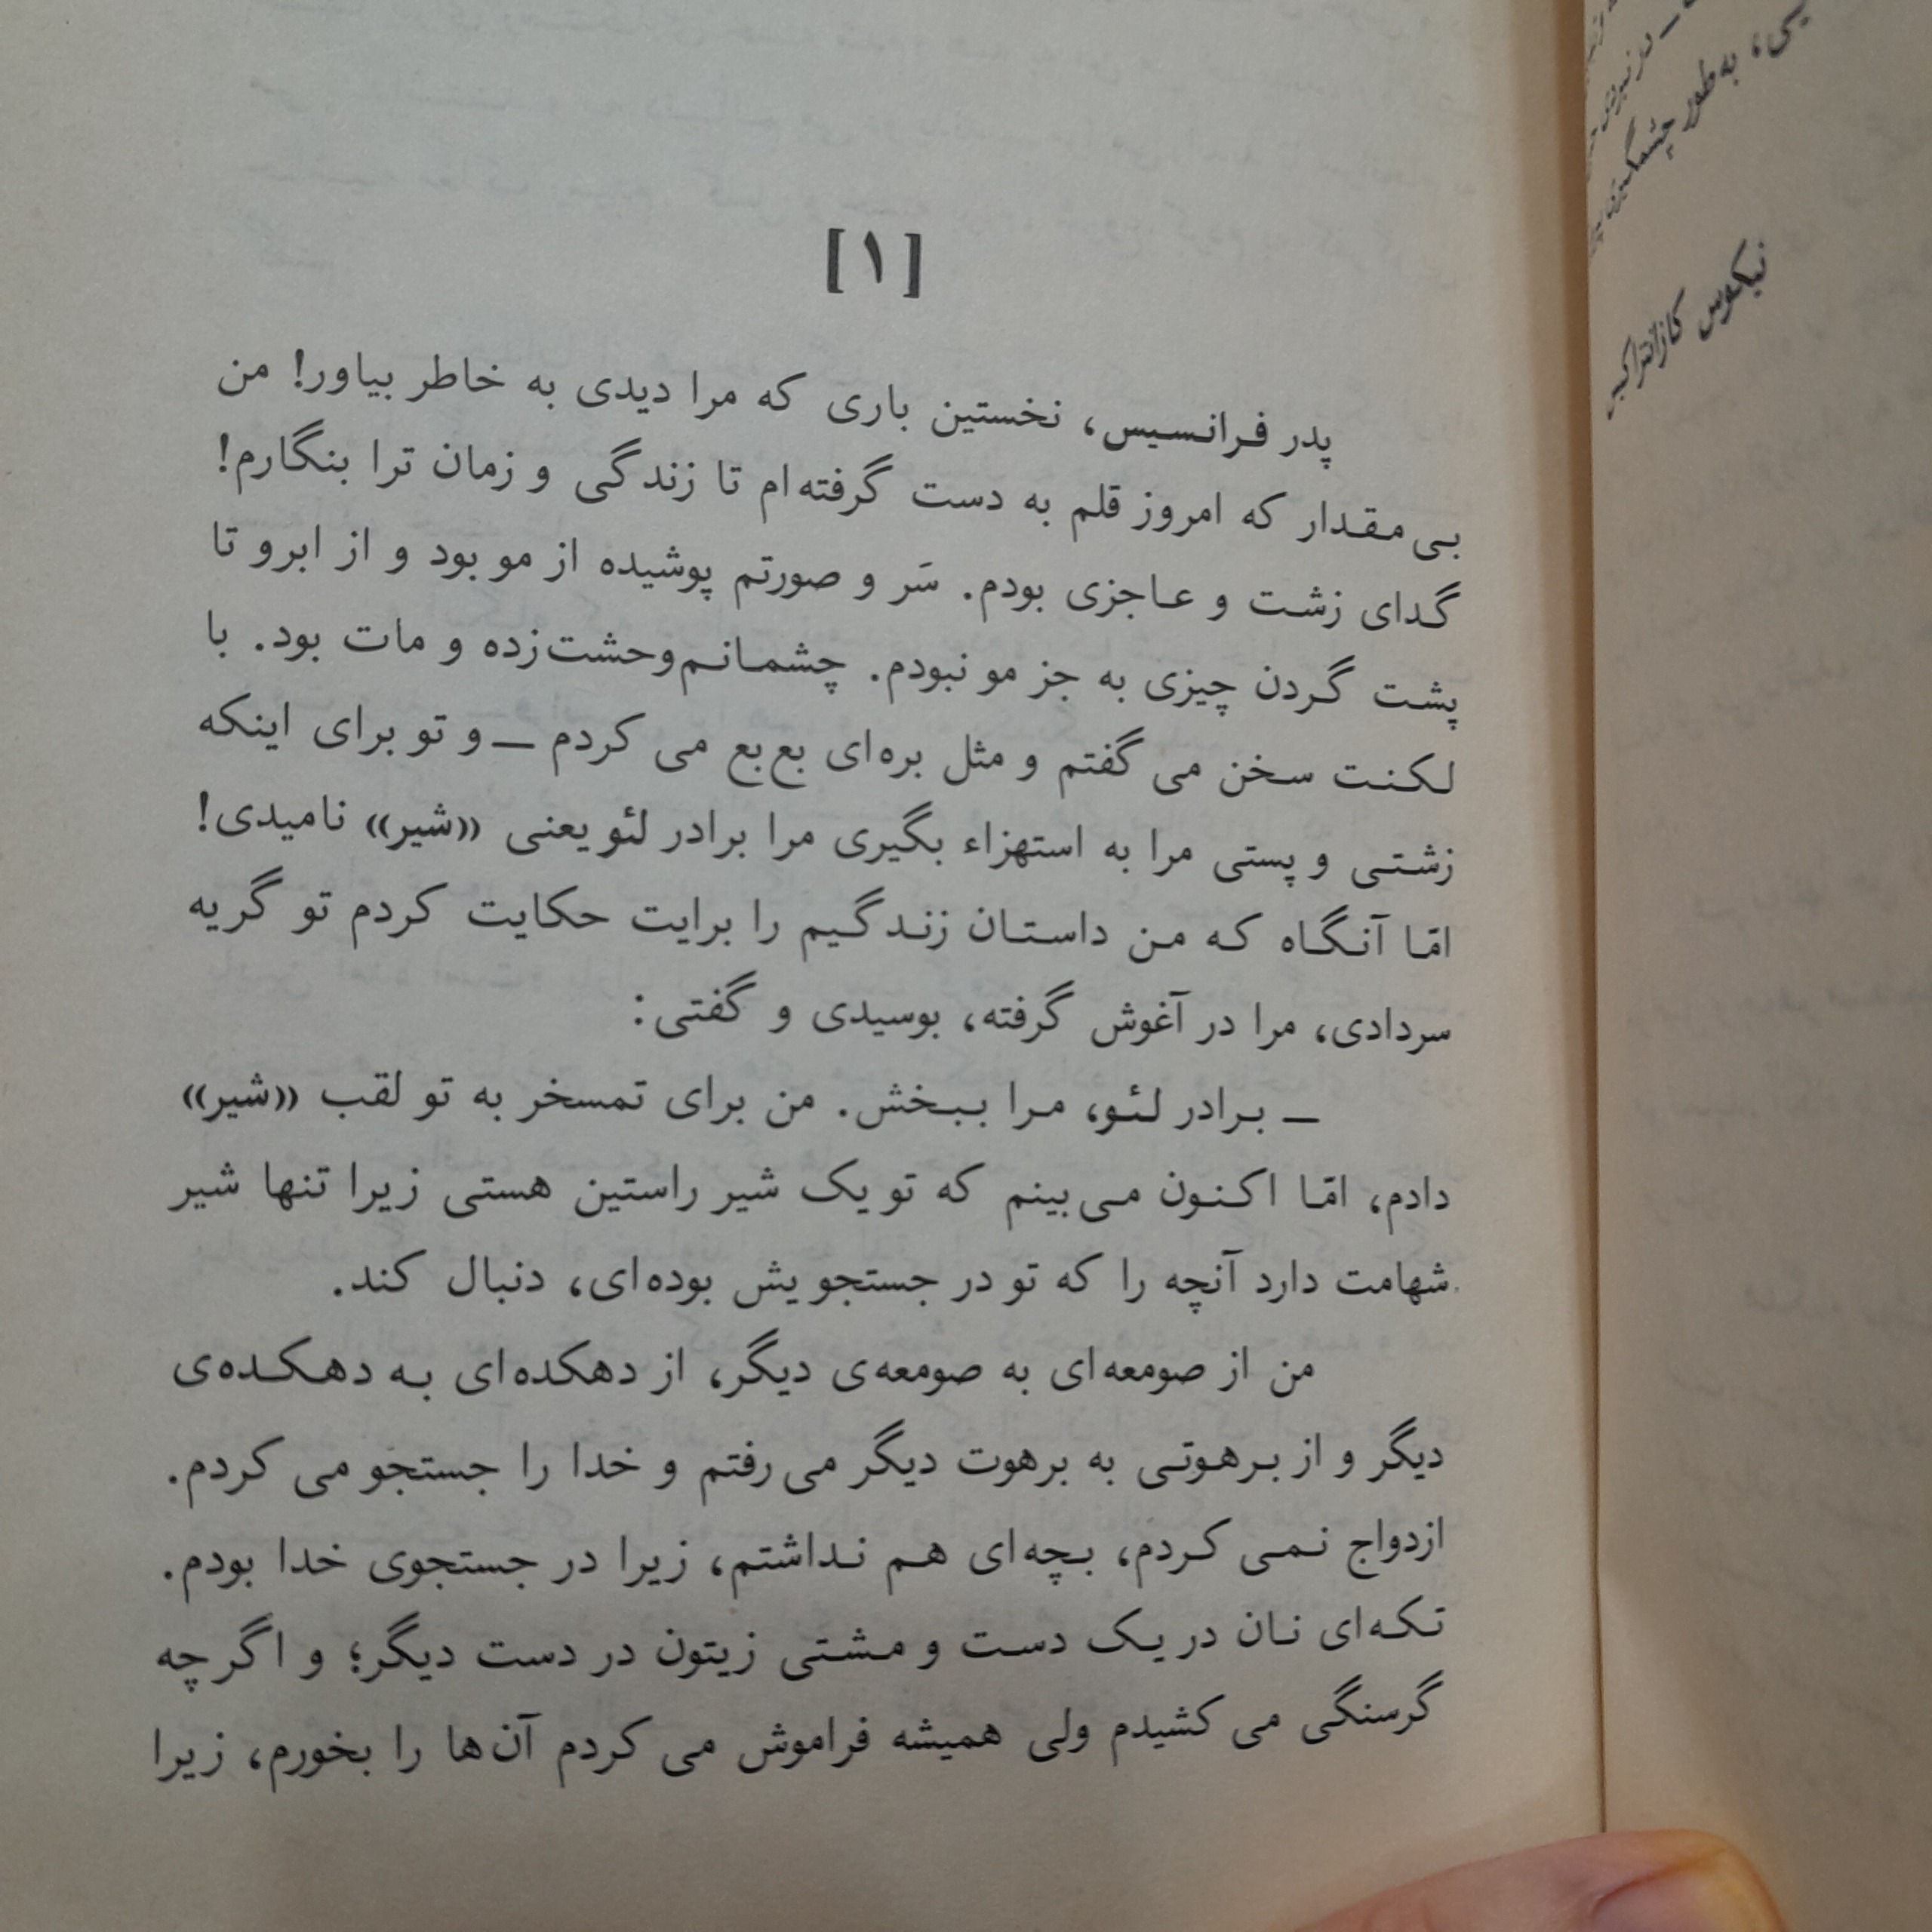 به‌طور چشمگیری
نیکوس کازانتزاکیس
[۱]
پدر فرانسیس، نخستین باری که مرا دیدی به خاطر بیاور! من
بی‌مقدار که امروز قلم به دست گرفته‌ام تا زندگی و زمان ترا بنگارم!
گدای زشت و عاجزی بودم. سَر و صورتم پوشیده از مو بود و از ابرو تا
پشت گردن چیزی به جز مو نبودم. چشمانم وحشت‌زده و مات بود. با
لکنت سخن می‌گفتم و مثل بره‌ای بع‌بع می‌کردم ــ و تو برای اینکه
زشتی و پستی مرا به استهزاء بگیری مرا برادر لئو یعنی «شیر» نامیدی!
امّا آنگاه که من داستان زندگیم را برایت حکایت کردم تو گریه
سردادی، مرا در آغوش گرفته، بوسیدی و گفتی:
ــ برادر لئو، مرا ببخش. من برای تمسخر به تو لقب «شیر»
دادم، امّا اکنون می‌بینم که تو یک شیر راستین هستی زیرا تنها شیر
شهامت دارد آنچه را که تو در جستجویش بوده‌ای، دنبال کند.
من از صومعه‌ای به صومعه‌ی دیگر، از دهکده‌ای به دهکده‌ی
دیگر و از برهوتی به برهوت دیگر می‌رفتم و خدا را جستجو می‌کردم.
ازدواج نمی‌کردم، بچه‌ای هم نداشتم، زیرا در جستجوی خدا بودم.
تکه‌ای نان در یک دست و مشتی زیتون در دست دیگر؛ و اگر چه
گرسنگی می‌کشیدم ولی همیشه فراموش می‌کردم آن‌ها را بخورم، زیرا